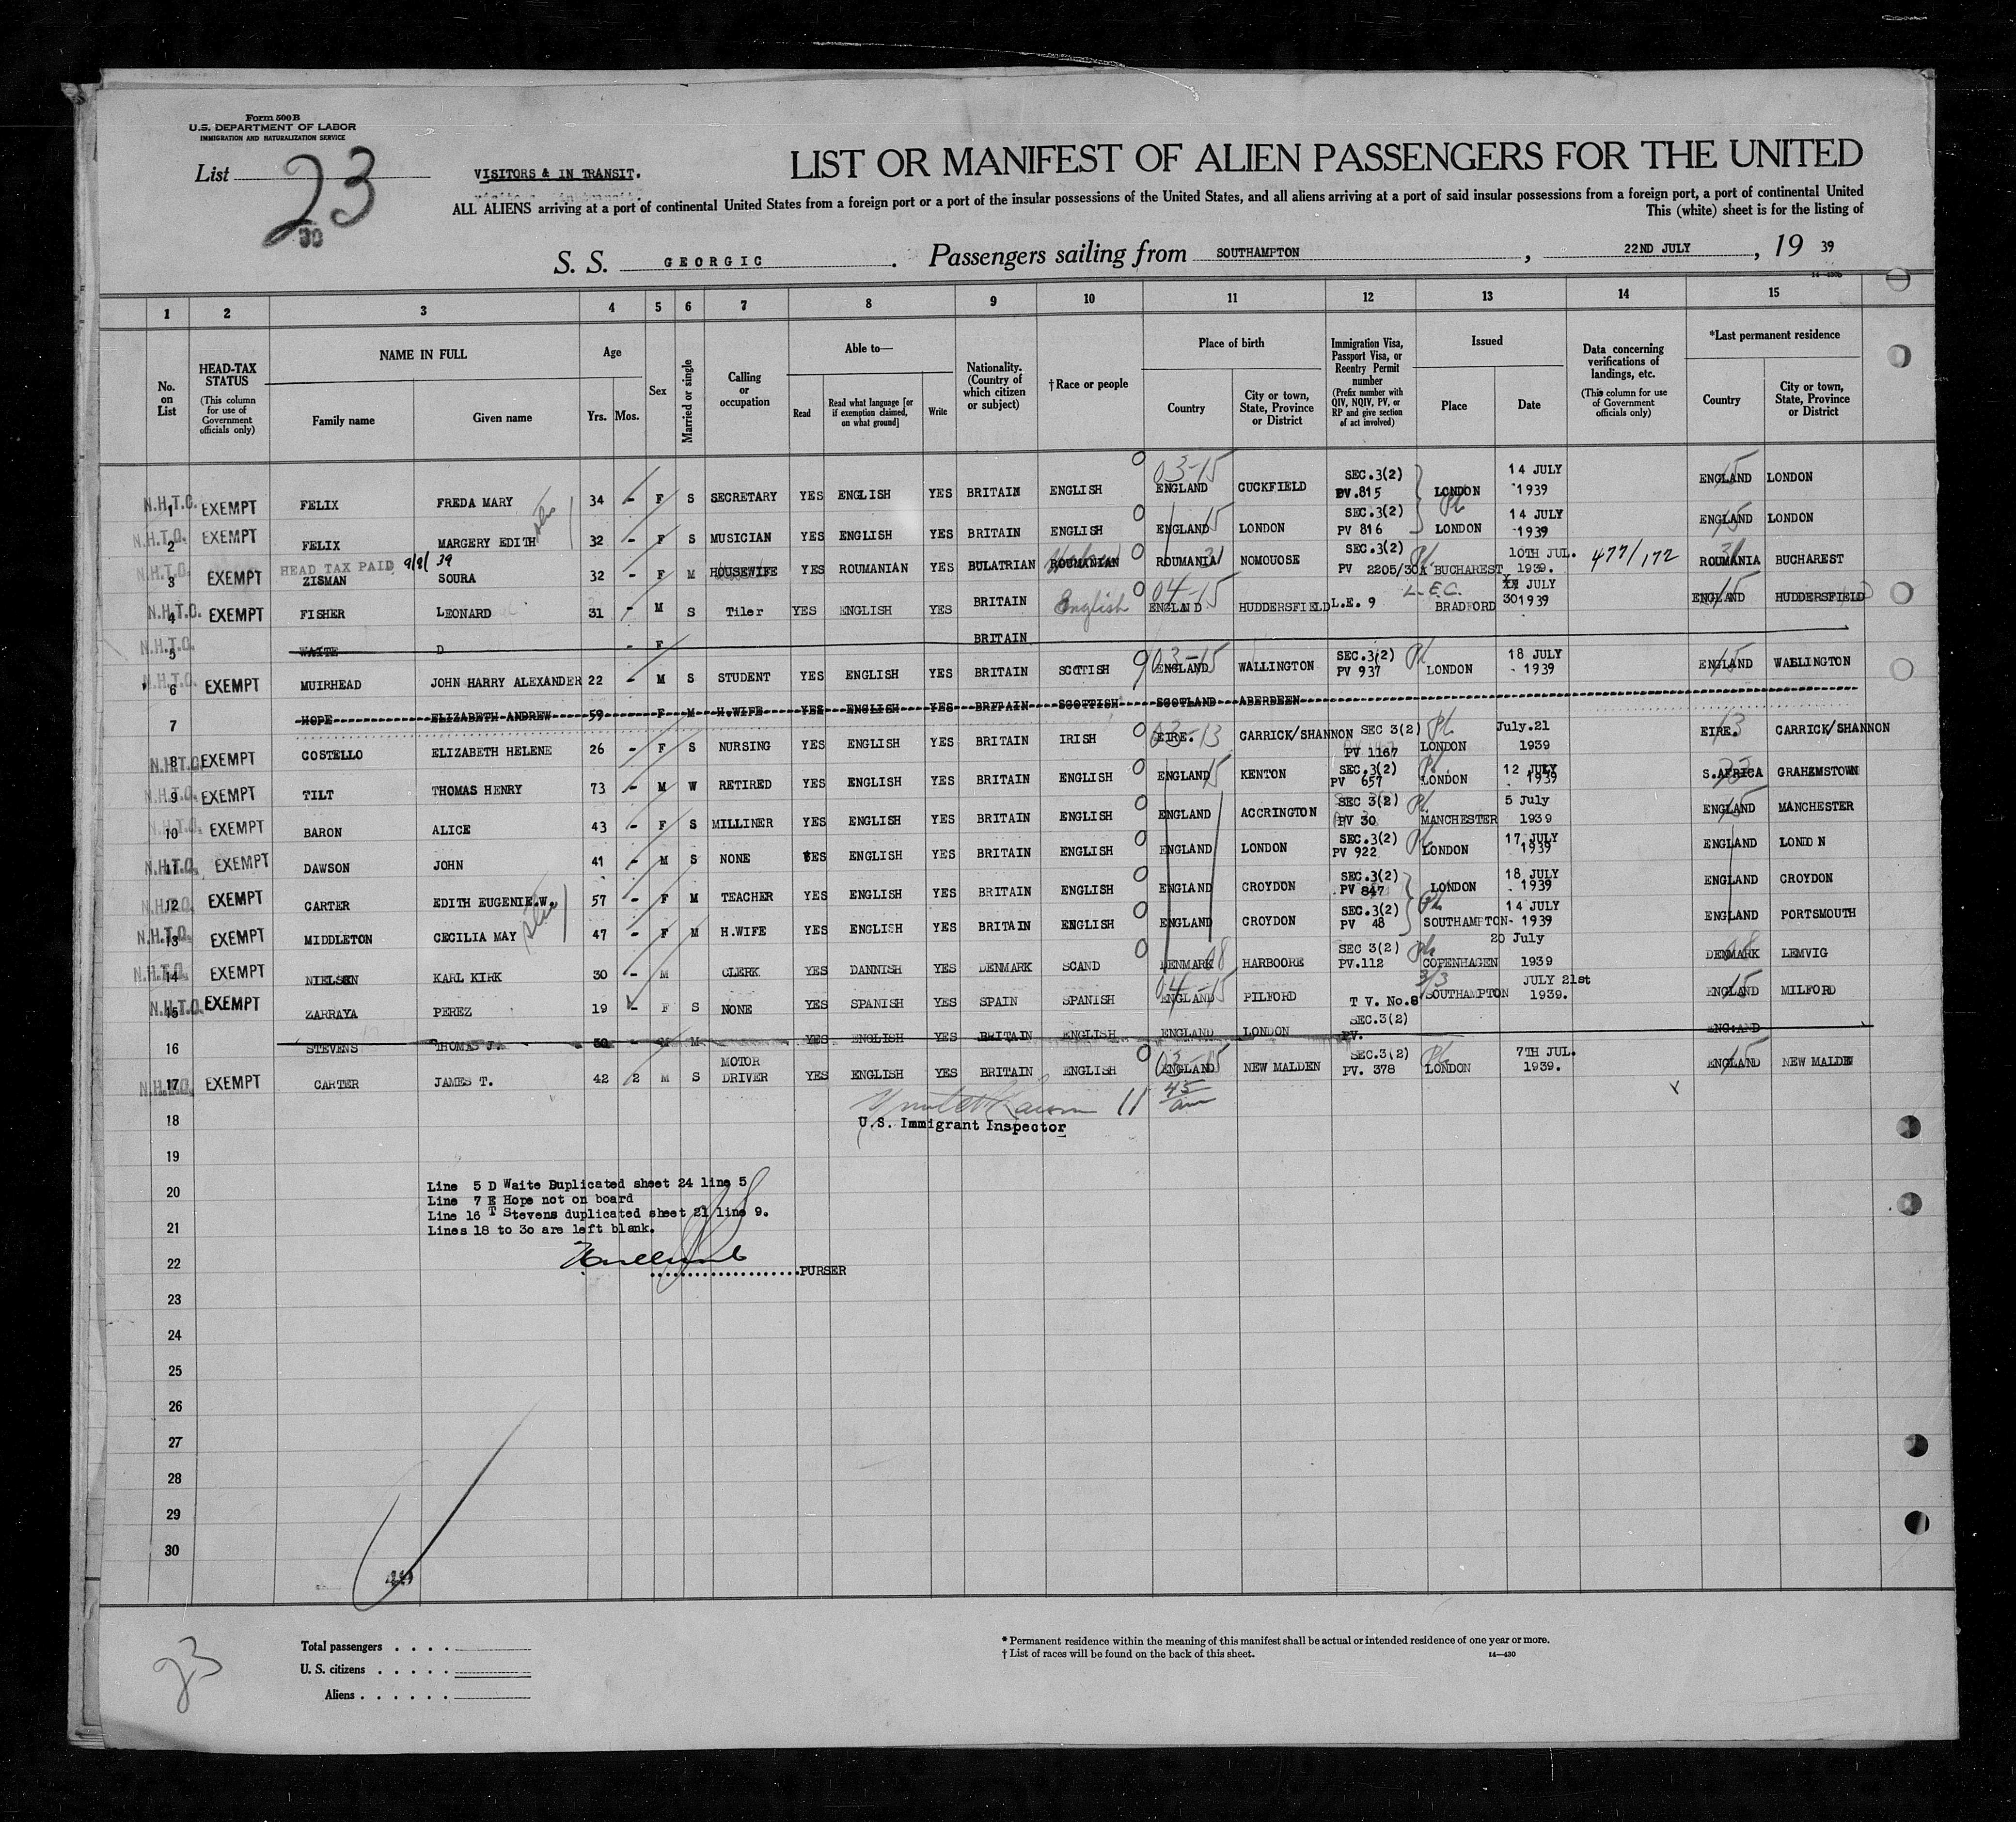 Form 500 B
U.S. DEPARTMENT OF LABOR
IMMIGRATION AND NATURALIZATION SERVICE
List 23
30
VISITORS & IN TRANSIT.
LIST OR MANIFEST OF ALIEN PASSENGERS FOR THE UNITED
ALL ALIENS arriving at a port of continental United States from a foreign port or a port of the insular possessions of the United States, and all aliens arriving at a port of said insular possessions from a foreign port, a port of continental United
This (white) sheet is for the listing of
S. S. GEORGIC . Passengers sailing from SOUTHAMPTON , 22ND JULY , 19 39
14-430b
1 2 3 4 5 6 7 8 9 10 11 12 13 14 15
No. on List
HEAD-TAX STATUS (This column for use of Government officials only)
NAME IN FULL
Family name Given name
Age
Yrs. Mos.
Sex
Married or single
Calling or occupation
Able to—
Read Read what language [or if exemption claimed, on what ground] Write
Nationality. (Country of which citizen or subject)
†Race or people
Place of birth
Country City or town, State, Province or District
Immigration Visa, Passport Visa, or Reentry Permit number (Prefix number with QIV, NQIV, PV, or RP and give section of act involved)
Issued
Place Date
Data concerning verifications of landings, etc. (This column for use of Government officials only)
*Last permanent residence
Country City or town, State, Province or District
N.H.T.O. 1 EXEMPT FELIX FREDA MARY 34 - F S SECRETARY YES ENGLISH YES BRITAIN ENGLISH 03-15 ENGLAND CUCKFIELD SEC.3(2) PV.815 LONDON 14 JULY 1939 ENGLAND 15 LONDON
N.H.T.O. 2 EXEMPT FELIX MARGERY EDITH 32 - F S MUSICIAN YES ENGLISH YES BRITAIN ENGLISH ENGLAND 15 LONDON SEC.3(2) PV 816 LONDON 14 JULY 1939 ENGLAND 15 LONDON
HEAD TAX PAID 9/8/39
N.H.T.O. 3 EXEMPT ZISMAN SOURA 32 - F M HOUSEWIFE YES ROUMANIAN YES BULATRIAN ROUMANIAN ROUMANIA 31 NOMOUOSE SEC.3(2) PV 2205/30A BUCHAREST 10TH JUL. 1939. 477/172 ROUMANIA 31 BUCHAREST
N.H.T.O. 4 EXEMPT FISHER LEONARD 31 - M S Tiler YES ENGLISH YES BRITAIN English 04-15 ENGLAND HUDDERSFIELD L.E. 9 L.E.C. BRADFORD JULY 30 1939 ENGLAND 15 HUDDERSFIELD
N.H.T.O. 5 WAITE D - F BRITAIN
N.H.T.O. 6 EXEMPT MUIRHEAD JOHN HARRY ALEXANDER 22 - M S STUDENT YES ENGLISH YES BRITAIN SCOTTISH 03-15 ENGLAND WALLINGTON SEC.3(2) PV 937 LONDON 18 JULY 1939 ENGLAND 15 WALLINGTON
7 HOPE ELIZABETH ANDREW 59 F M H.WIFE YES ENGLISH YES BRITAIN SCOTTISH SCOTLAND ABERDEEN
N.H.T.O. 8 EXEMPT COSTELLO ELIZABETH HELENE 26 - F S NURSING YES ENGLISH YES BRITAIN IRISH 03-13 EIRE. CARRICK/SHANNON SEC 3(2) PV 1167 LONDON July.21 1939 EIRE. 13 CARRICK/SHANNON
N.H.T.O. 9 EXEMPT TILT THOMAS HENRY 73 - M W RETIRED YES ENGLISH YES BRITAIN ENGLISH ENGLAND 15 KENTON SEC.3(2) PV 657 LONDON 12 JULY 1939 S.AFRICA GRAHEMSTOWN
N.H.T.O. 10 EXEMPT BARON ALICE 43 - F S MILLINER YES ENGLISH YES BRITAIN ENGLISH ENGLAND ACCRINGTON SEC 3(2) PV 30 MANCHESTER 5 July 1939 ENGLAND 15 MANCHESTER
N.H.T.O. 11 EXEMPT DAWSON JOHN 41 - M S NONE YES ENGLISH YES BRITAIN ENGLISH ENGLAND LONDON SEC.3(2) PV 922 LONDON 17 JULY 1939 ENGLAND LONDON
N.H.T.O. 12 EXEMPT CARTER EDITH EUGENIE.W. 57 - F M TEACHER YES ENGLISH YES BRITAIN ENGLISH ENGLAND CROYDON SEC.3(2) PV 847 LONDON 18 JULY 1939 ENGLAND CROYDON
N.H.T.O. 13 EXEMPT MIDDLETON CECILIA MAY 47 - F M H.WIFE YES ENGLISH YES BRITAIN ENGLISH ENGLAND CROYDON SEC.3(2) PV 48 SOUTHAMPTON- 14 JULY 1939 ENGLAND PORTSMOUTH
N.H.T.O. 14 EXEMPT NIELSEN KARL KIRK 30 - M CLERK YES DANNISH YES DENMARK SCAND DENMARK 08 HARBOORE SEC 3(2) PV.112 COPENHAGEN 20 July 1939 DENMARK 08 LEMVIG
N.H.T.O. 15 EXEMPT ZARRAYA PEREZ 19 - F S NONE YES SPANISH YES SPAIN SPANISH 04-15 ENGLAND PILFORD T V. No.8 3/3 SOUTHAMPTON JULY 21st 1939. ENGLAND 15 MILFORD
16 STEVENS THOMAS J. M M YES ENGLISH YES BRITAIN ENGLISH ENGLAND LONDON SEC.3(2) PV. ENG:AND
N.H.T.O. 17 EXEMPT CARTER JAMES T. 42 2 M S MOTOR DRIVER YES ENGLISH YES BRITAIN ENGLISH 03-15 ENGLAND NEW MALDEN SEC.3(2) PV. 378 LONDON 7TH JUL. 1939. ENGLAND 15 NEW MALDEN
11 45 am
18 U.S. Immigrant Inspector
19
20
Line 5 D Waite Duplicated sheet 24 line 5
Line 7 E Hope not on board
Line 16 T Stevens duplicated sheet 21 line 9.
21
Lines 18 to 30 are left blank.
22
PURSER
23
24
25
26
27
28
29
30
23
Total passengers . . . .
U. S. citizens . . . . .
Aliens . . . . . .
* Permanent residence within the meaning of this manifest shall be actual or intended residence of one year or more.
† List of races will be found on the back of this sheet. 14—430